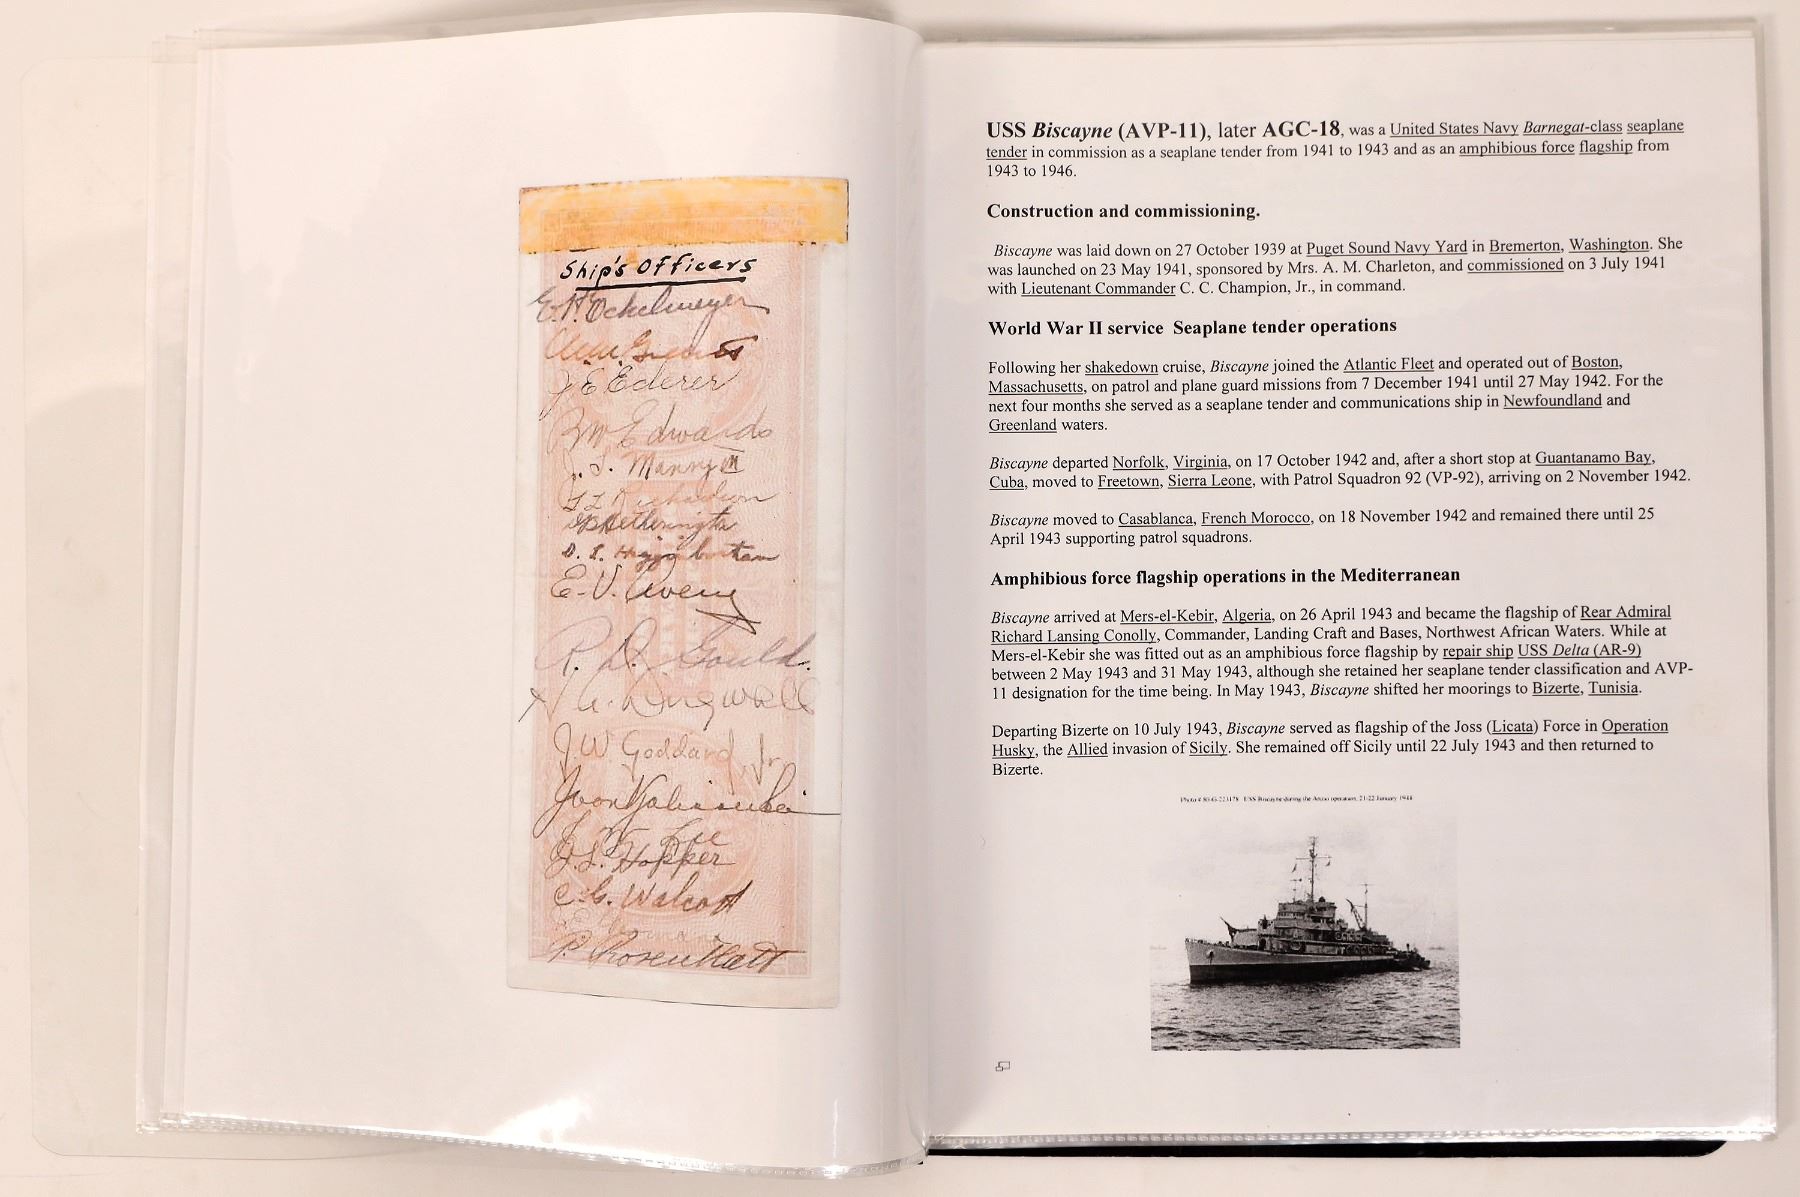 Ship's Officers
E. H. Ockelmeyer
J E Ederer
R W Edwards
J. S. Manning III
G L Richardson
Hetherington
D. L. Higginbotham
E. V. Avery
R. D. Gould.
A. Dingwall
J. W. Goddard, Jr.
J. W. Lee
J. L. Hopper
C. G. Walcott
P. Rosenblatt
USS Biscayne (AVP-11), later AGC-18, was a United States Navy Barnegat-class seaplane
tender in commission as a seaplane tender from 1941 to 1943 and as an amphibious force flagship from
1943 to 1946.
Construction and commissioning.
Biscayne was laid down on 27 October 1939 at Puget Sound Navy Yard in Bremerton, Washington. She
was launched on 23 May 1941, sponsored by Mrs. A. M. Charleton, and commissioned on 3 July 1941
with Lieutenant Commander C. C. Champion, Jr., in command.
World War II service Seaplane tender operations
Following her shakedown cruise, Biscayne joined the Atlantic Fleet and operated out of Boston,
Massachusetts, on patrol and plane guard missions from 7 December 1941 until 27 May 1942. For the
next four months she served as a seaplane tender and communications ship in Newfoundland and
Greenland waters.
Biscayne departed Norfolk, Virginia, on 17 October 1942 and, after a short stop at Guantanamo Bay,
Cuba, moved to Freetown, Sierra Leone, with Patrol Squadron 92 (VP-92), arriving on 2 November 1942.
Biscayne moved to Casablanca, French Morocco, on 18 November 1942 and remained there until 25
April 1943 supporting patrol squadrons.
Amphibious force flagship operations in the Mediterranean
Biscayne arrived at Mers-el-Kebir, Algeria, on 26 April 1943 and became the flagship of Rear Admiral
Richard Lansing Conolly, Commander, Landing Craft and Bases, Northwest African Waters. While at
Mers-el-Kebir she was fitted out as an amphibious force flagship by repair ship USS Delta (AR-9)
between 2 May 1943 and 31 May 1943, although she retained her seaplane tender classification and AVP-
11 designation for the time being. In May 1943, Biscayne shifted her moorings to Bizerte, Tunisia.
Departing Bizerte on 10 July 1943, Biscayne served as flagship of the Joss (Licata) Force in Operation
Husky, the Allied invasion of Sicily. She remained off Sicily until 22 July 1943 and then returned to
Bizerte.
Photo # 80-G-223178 USS Biscayne during the Anzio operation, 21-22 January 1944